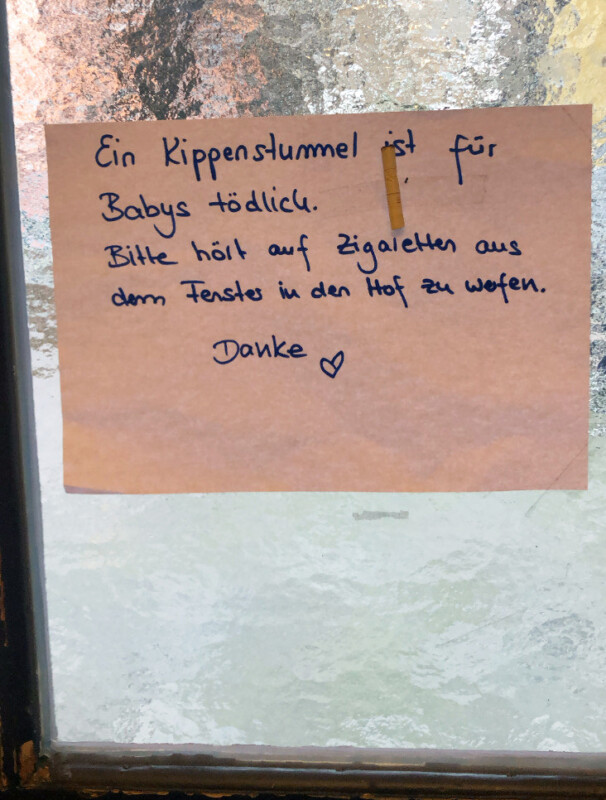 Ein Kippenstummel ist für
Babys tödlich.
Bitte hört auf Zigaretten aus
dem Fenster in den Hof zu wefen.
Danke ♡